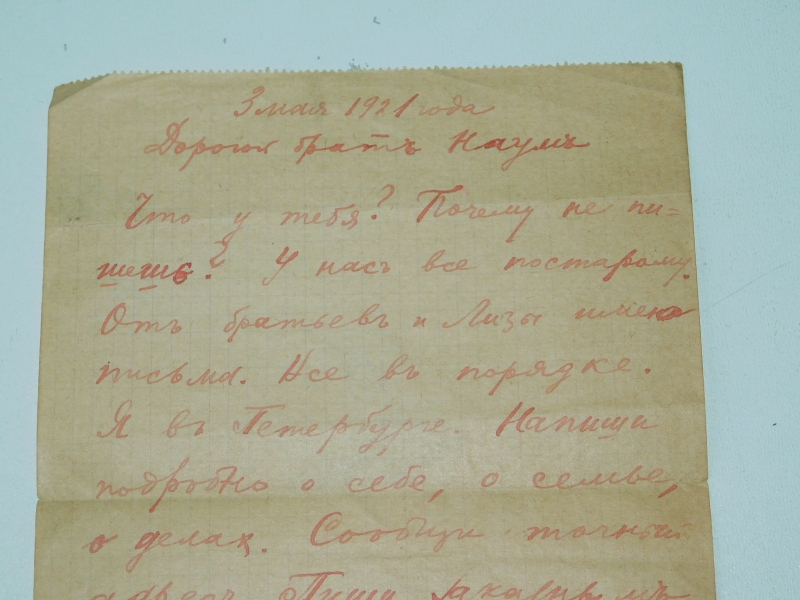 3 мая 1921 года
Дорогой братъ Наумъ
Что у тебя? Почему не пи=
шешь? У насъ все постарому.
Отъ братьевъ и Лизы имею
письма. Все въ порядке.
Я въ Петербурге. Напиши
подробно о себе, о семье,
о делах. Сообщи точный
адресъ. Пиши заказнымъ